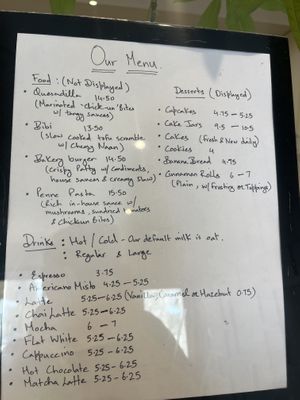 Our Menu.
Food: (Not Displayed)
• Quesadilla 14.50
(Marinated 'Chick-un' Bites
w/ tangy sauces)
• Bibi 13.50
(Slow cooked tofu scramble
w/ Cheesy Naan)
• Bakery burger 14.50
(Crispy Patty w/ Condiments,
house sauces & creamy Slaw)
• Penne Pasta 15.50
(Rich in-house sauce w/
mushrooms, sundried tomatoes
& Chickun Bites)
Desserts (Displayed)
• Cupcakes 4.75 - 5.25
• Cake Jars 9.5 - 10.5
• Cakes (fresh & New daily)
• Cookies 4
• Banana Bread 4.75
• Cinnamon Rolls 6 - 7
(Plain, w/ Frosting or Toppings)
Drinks: Hot / Cold - Our default milk is oat.
: Regular & Large
• Espresso 3.75
• Americano Misto 4.25 - 5.25
• Latte 5.25 - 6.25 (Vanilla, Caramel or Hazelnut 0.75)
• Chai Latte 5.25 - 6.25
• Mocha 6 - 7
• Flat White 5.25 - 6.25
• Cappuccino 5.25 - 6.25
• Hot Chocolate 5.25 - 6.25
• Matcha Latte 5.25 - 6.25